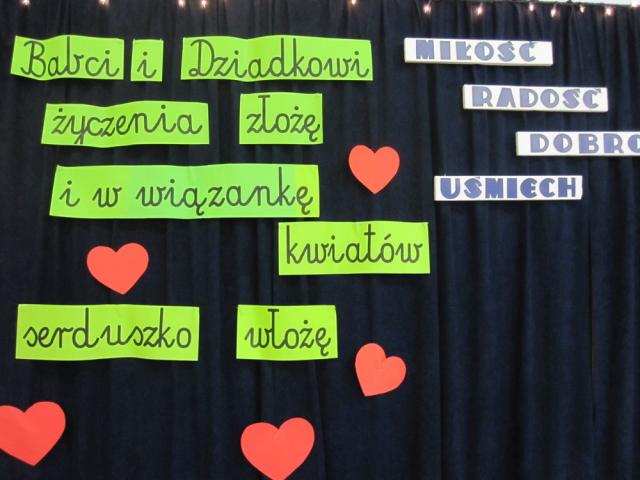 Babci i Dziadkowi
życzenia złożę
i w wiązankę
kwiatów
serduszko włożę
MIŁOŚĆ
RADOŚĆ
DOBRO
UŚMIECH